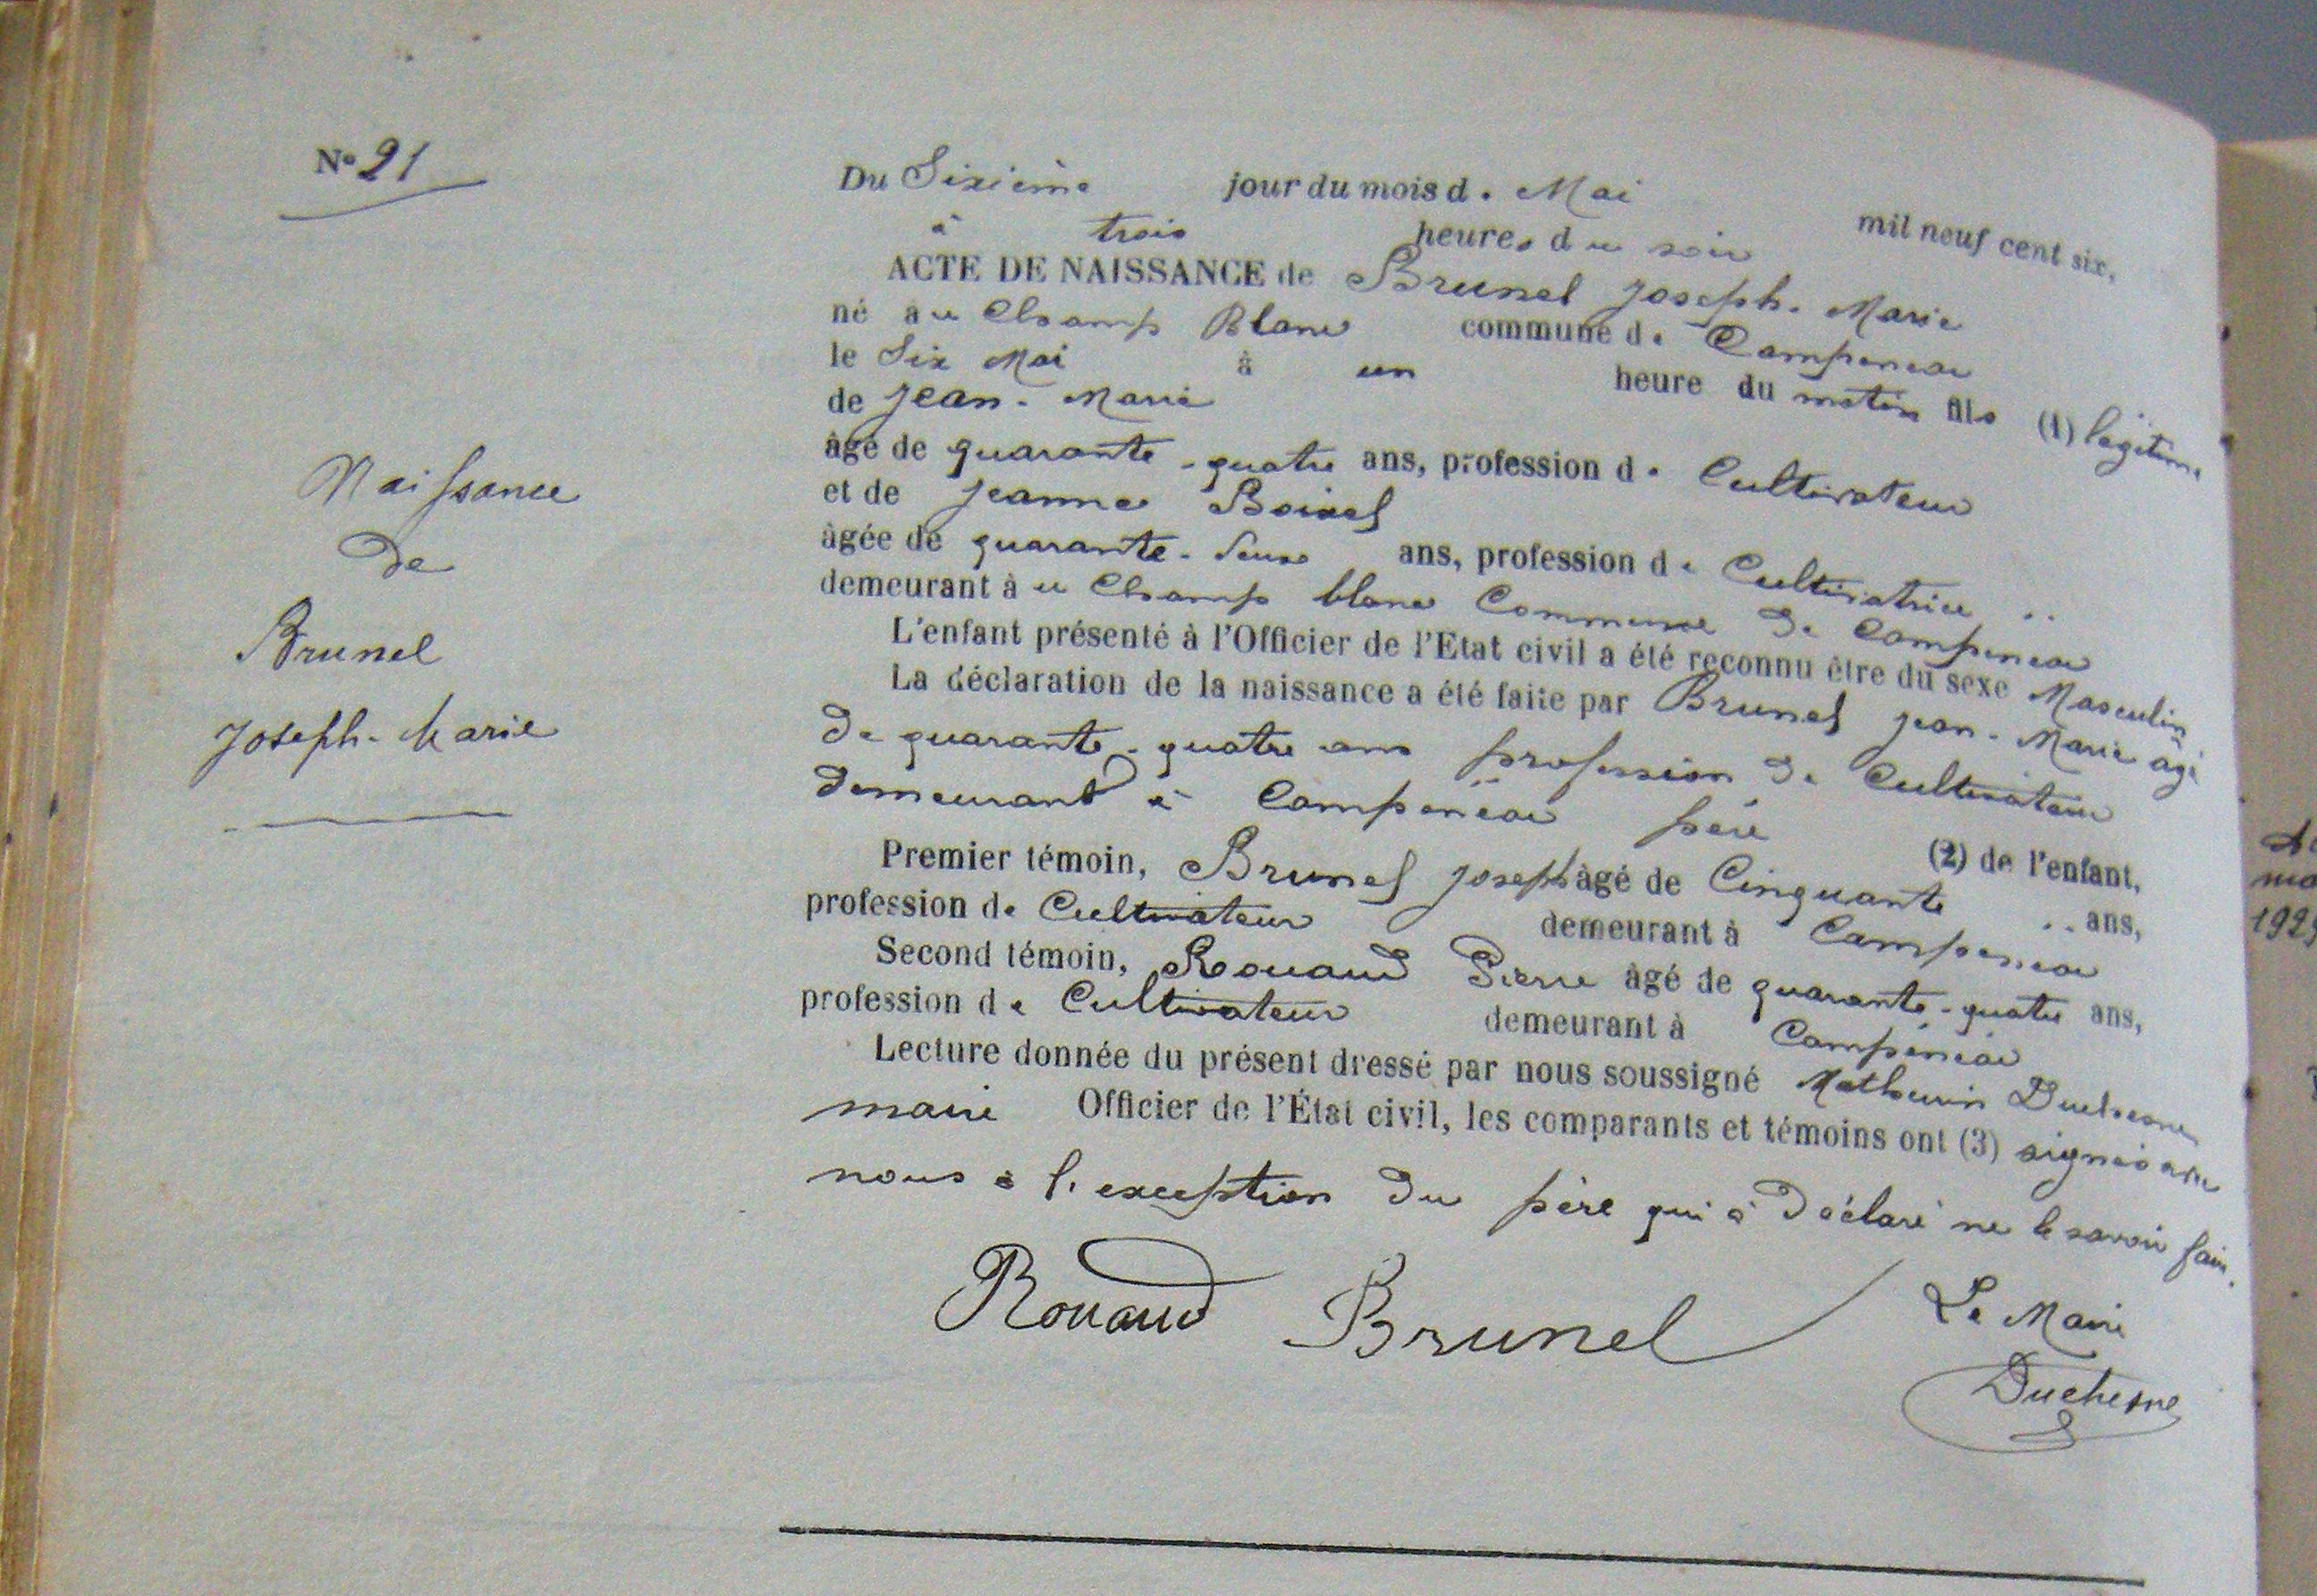 N° 21
Naissance
de
Brunel
Joseph-Marie
Du Sixième jour du mois de Mai mil neuf cent six,
à trois heures du soir
ACTE DE NAISSANCE de Brunel Joseph-Marie
né au Champ Blanc commune de Campénéac
le Six Mai à un heure du matin fils (1) légitime
de Jean-Marie
âgé de quarante-quatre ans, profession de Cultivateur
et de Jeanne
âgée de quarante-deux ans, profession de Cultivatrice ..
demeurant à u Champ blanc Commune de Campénéac
L'enfant présenté à l'Officier de l'Etat civil a été reconnu être du sexe Masculin
La déclaration de la naissance a été faite par Brunel Jean-Marie âgé
de quarante-quatre ans profession de Cultivateur
demeurant à Campénéac père (2) de l'enfant,
Premier témoin, Brunel Joseph âgé de Cinquante .. ans,
profession de Cultivateur demeurant à Campénéac
Second témoin, Rouaud Pierre âgé de quarante-quatre ans,
profession de Cultivateur demeurant à Campénéac
Lecture donnée du présent dressé par nous soussigné Mathurin Duchesne
maire Officier de l'État civil, les comparants et témoins ont (3) signés avec
nous à l'exception du père qui à déclaré ne le savoir faire.
Rouaud Brunel Le Maire
Duchesne